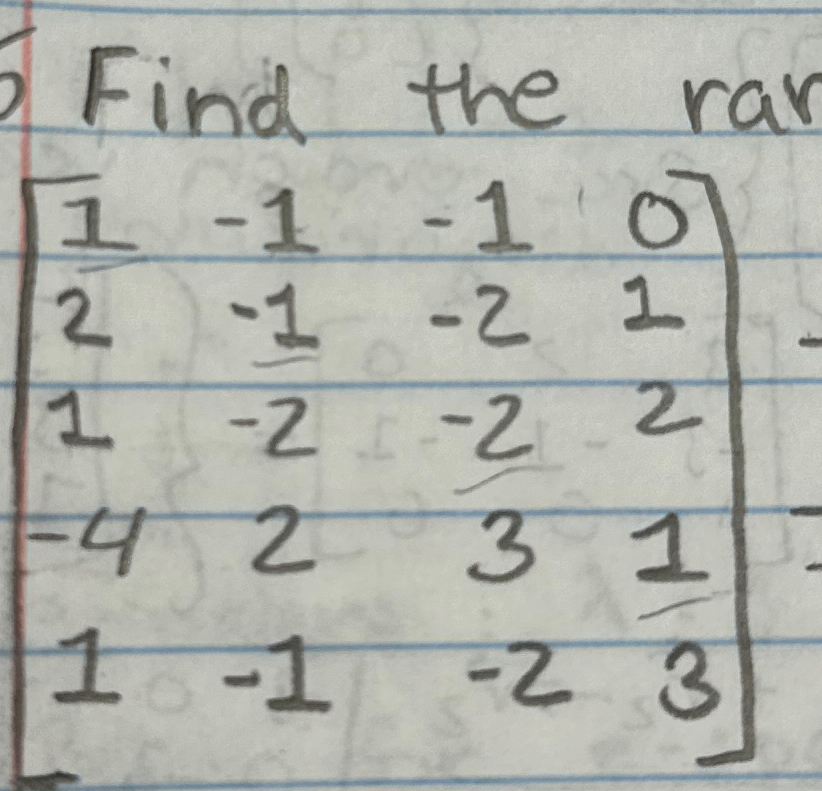 Find the
1 -1 -1 0
2 -1 -2 1
1 -2 -2 2
-4 2 3 1
1 -1 -2 3